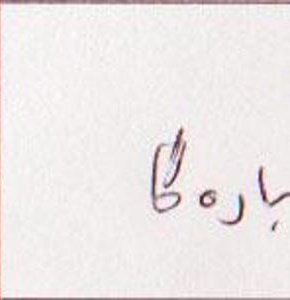 بارہ گا